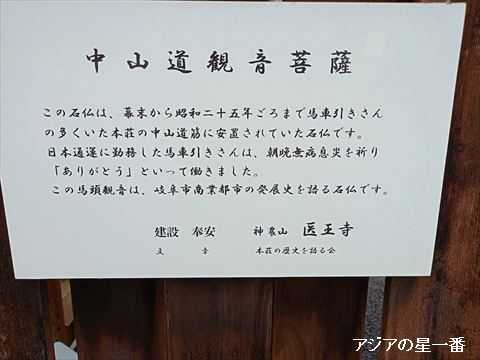 中山道観音菩薩
この石仏は、幕末から昭和二十五年ごろまで馬車引きさん
の多くいた本荘の中山道筋に安置されていた石仏です。
日本通運に勤務した馬車引きさんは、朝晩無病息災を祈り
「ありがとう」といって働きました。
この馬頭観音は、岐阜市商業都市の発展史を語る石仏です。
建設 奉安 神農山 医王寺
文責 本荘の歴史を語る会
アジアの星一番